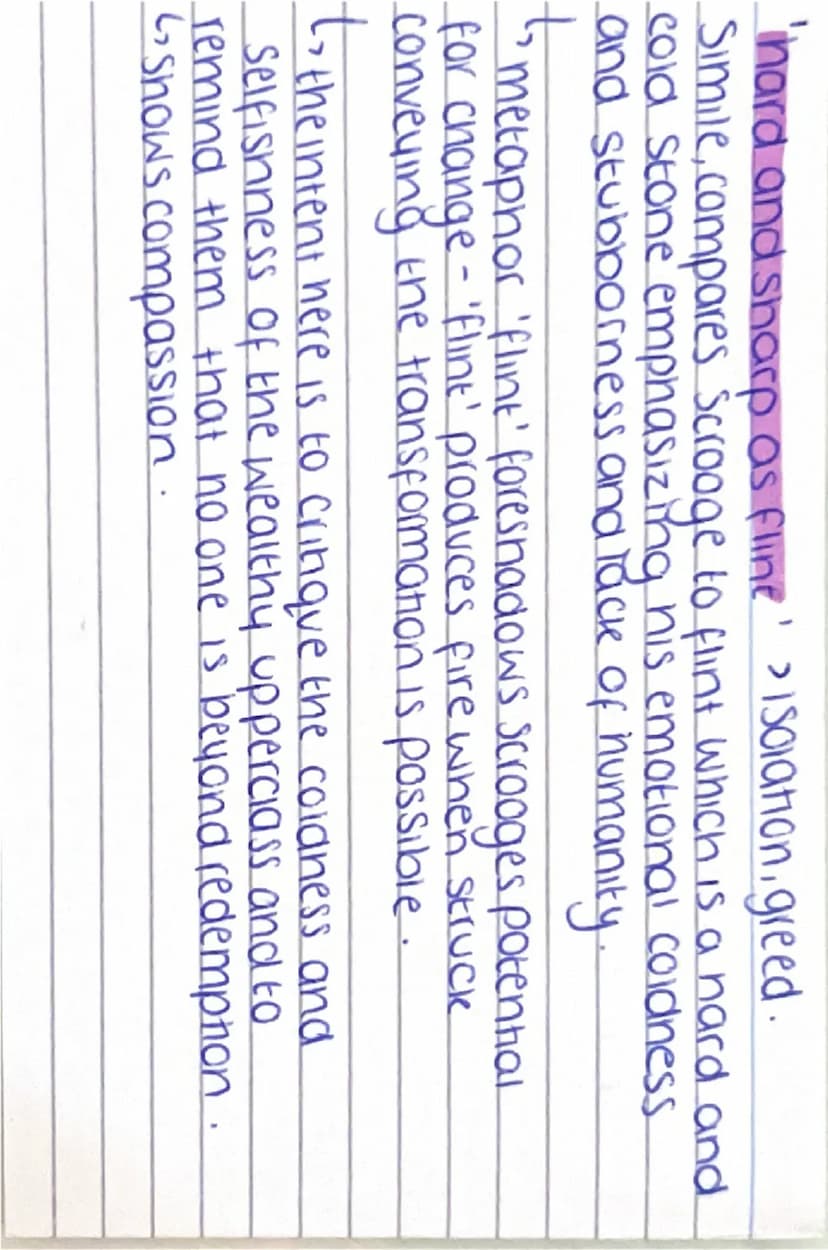 'hard and sharp as flint' > isolation, greed.
Simile, compares Scrooge to flint which is a hard and
cold stone emphasizing his emotional coldness
and stubborness and lack of humanity.
↳ metaphor 'flint' foreshadows scrooges potential
for change - 'flint' produces fire when struck
conveying the transformation is possible.
↳ the intent here is to critique the coldness and
selfishness of the wealthy upperclass and to
remind them that no one is beyond redemption.
↳ shows compassion.